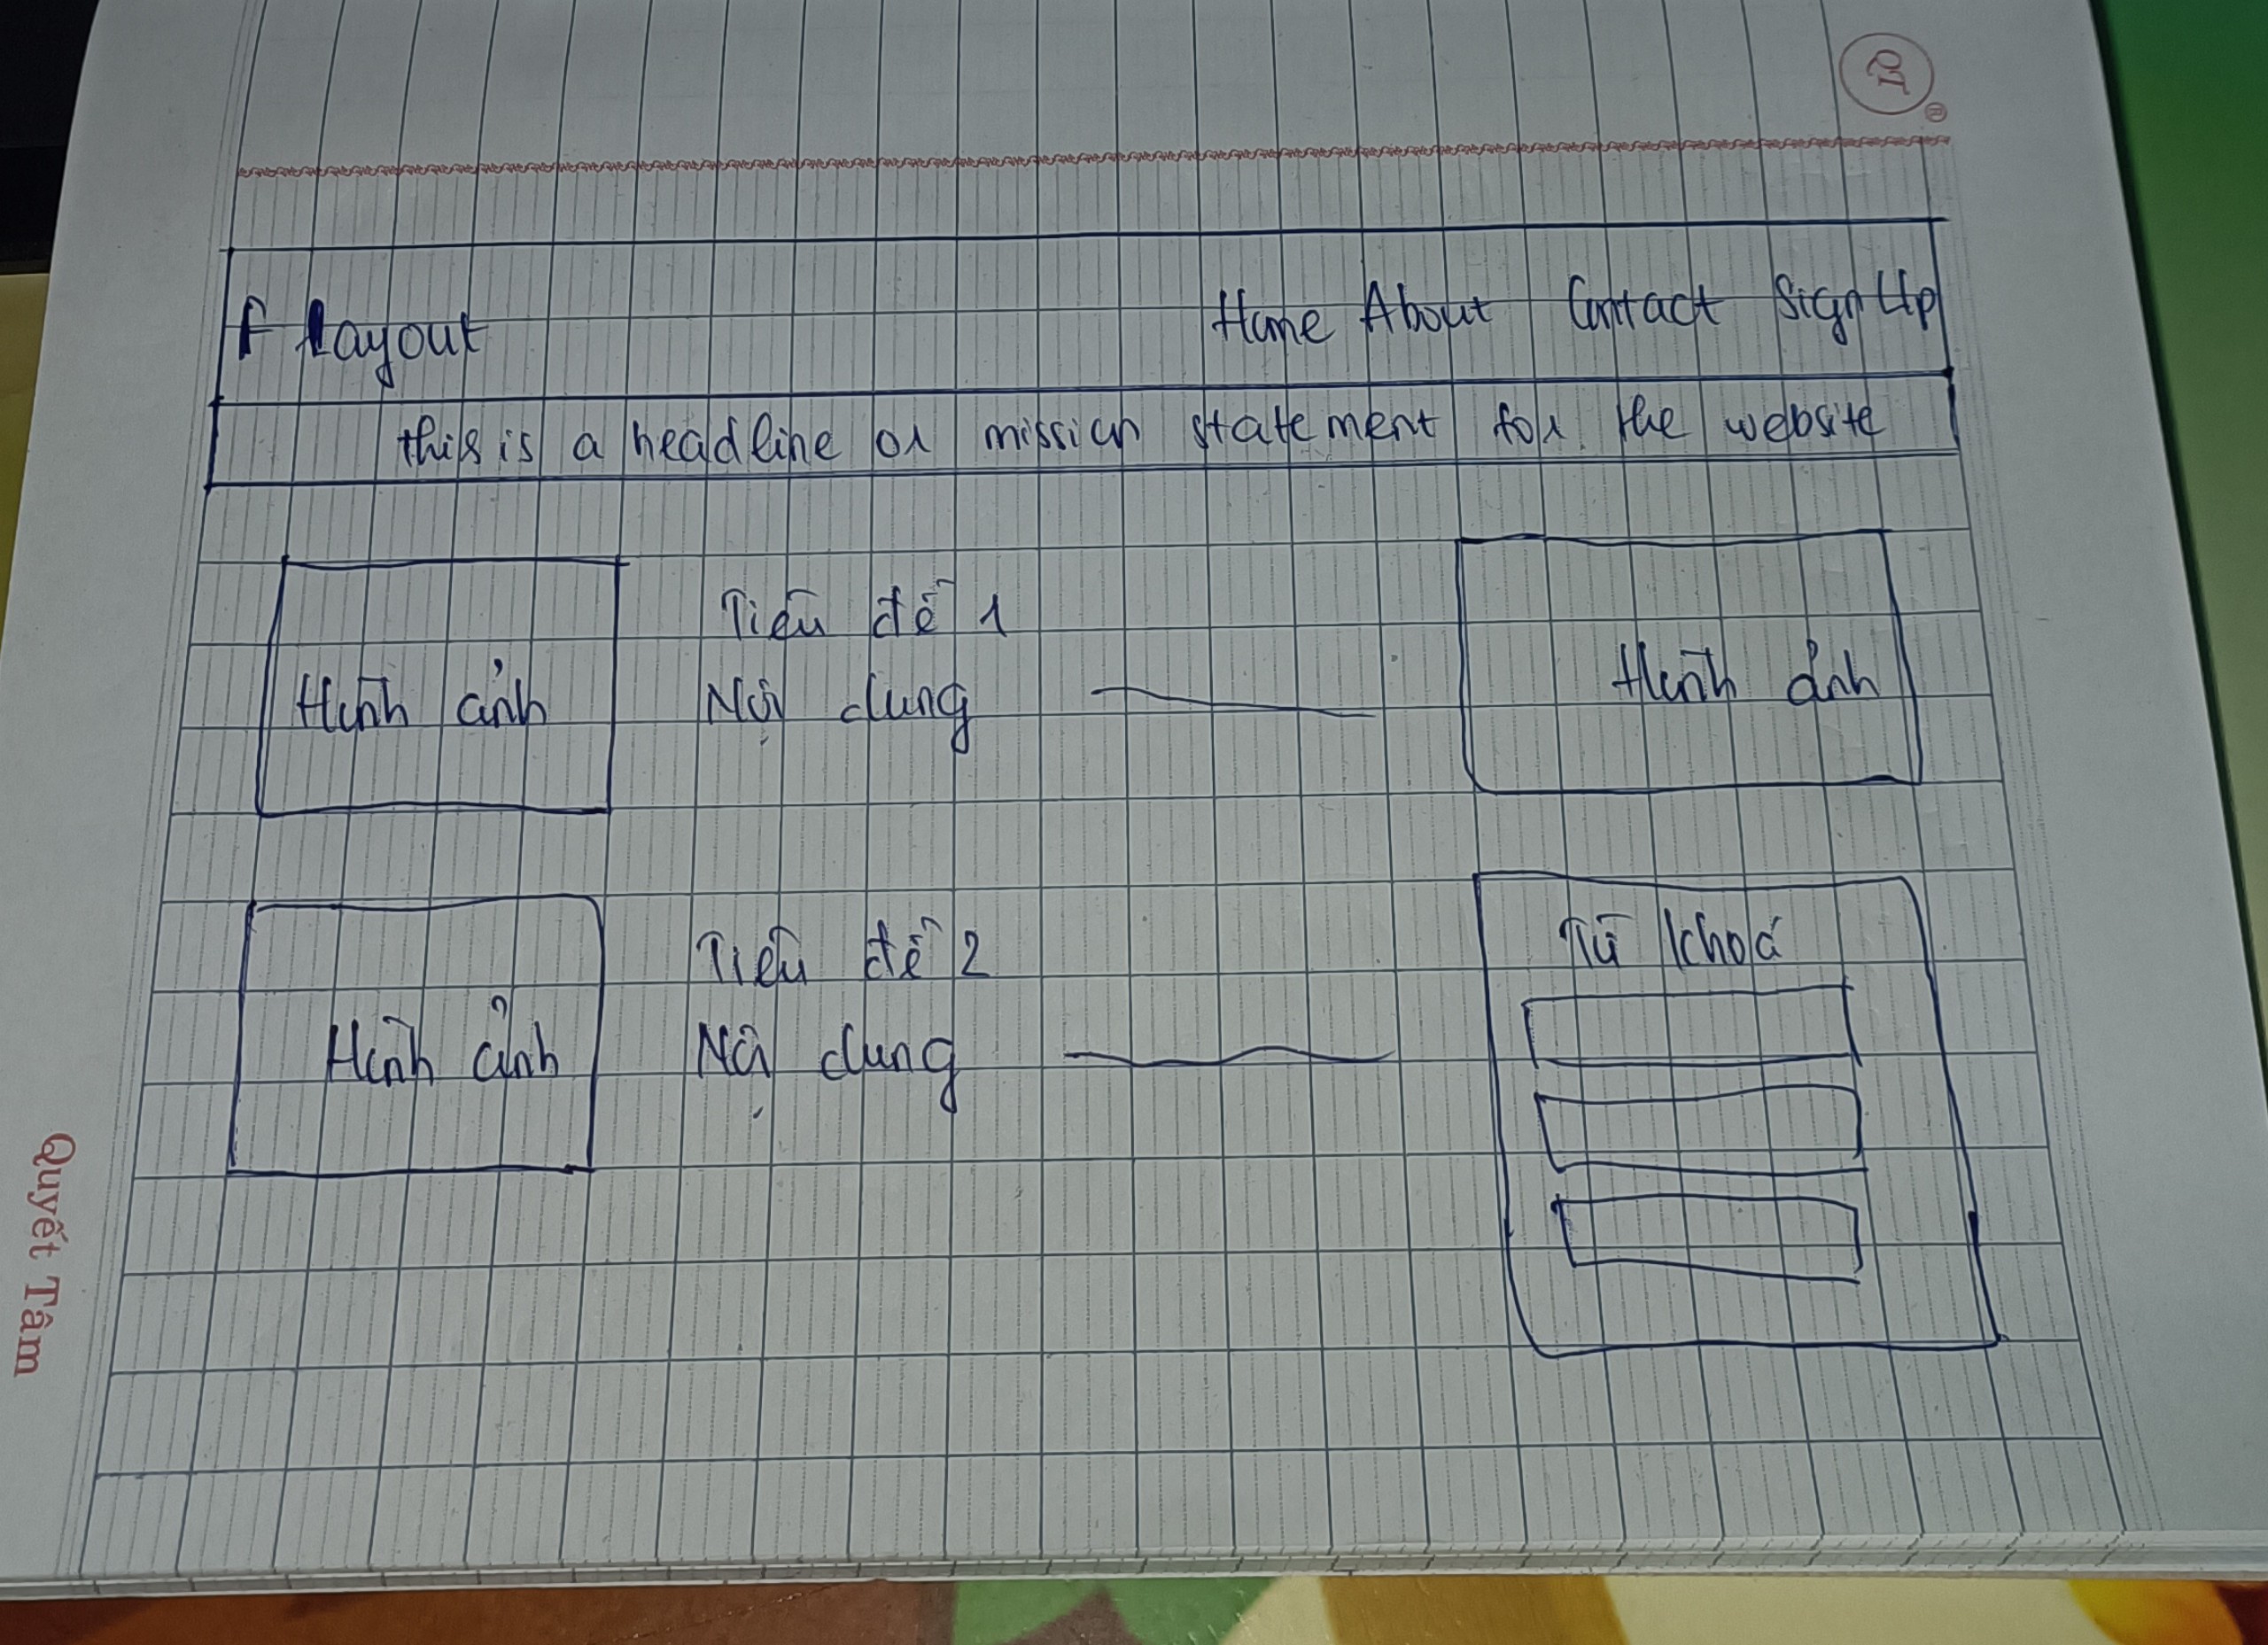 QT
®
F Layout
Home About Contact Sign Up
this is a headline or mission statement for the website
Hình ảnh
Tiêu đề 1
Nội dung
Hình ảnh
Hình ảnh
Tiêu đề 2
Nội dung
Từ khoá
Quyết Tâm